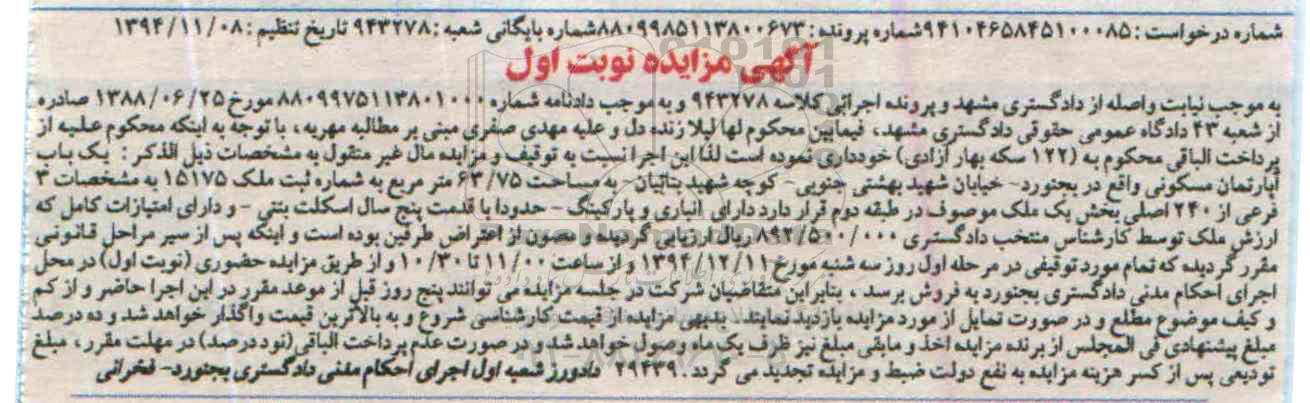 شماره درخواست : ۹۴۱۰۴۶۵۸۴۵۱۰۰۰۸۵شماره پرونده : ۸۸۰۹۹۸۵۱۱۳۸۰۰۶۷۳شماره بایگانی شعبه :۹۴۳۲۷۸ تاریخ تنظیم : ۱۳۹۴/۱۱/۰۸
آگهی مزایده نوبت اول
به موجب نیابت واصله از دادگستری مشهد و پرونده اجرائی کلاسه ۹۴۳۲۷۸ و به موجب دادنامه شماره ۸۸۰۹۹۷۵۱۱۳۸۰۱۰۰۰ مورخ ۱۳۸۸/۰۶/۲۵ صادره
از شعبه ۴۳ دادگاه عمومی حقوقی دادگستری مشهد، فیمابین محکوم لها لیلا زنده دل و علیه مهدی صفری مبنی بر مطالبه مهریه ، با توجه به اینکه محکوم علیه از
پرداخت الباقی محکوم به (۱۲۲ سکه بهار آزادی) خودداری نموده است لذا این اجرا نسبت به توقیف و مزایده مال غیر منقول به مشخصات ذیل الذکر : یک باب
آپارتمان مسکونی واقع در بجنورد- خیابان شهید بهشتی جنوبی- کوچه شهید بنائیان - به مساحت ۶۳/۷۵ متر مربع به شماره ثبت ملک ۱۵۱۷۵ به مشخصات ۳
فرعی از ۲۴۰ اصلی بخش یک ملک موصوف در طبقه دوم قرار دارد دارای انباری و پارکینگ - حدودا با قدمت پنج سال اسکلت بتنی - و دارای امتیازات کامل که
ارزش ملک توسط کارشناس منتخب دادگستری ۸۹۲/۵۰۰/۰۰۰ ریال ارزیابی گردیده و مصون از اعتراض طرفین بوده است و اینکه پس از سیر مراحل قانونی
مقرر گردیده که تمام مورد توقیفی در مرحله اول روز سه شنبه مورخ ۱۳۹۴/۱۲/۱۱ و از ساعت ۱۱/۰۰ تا ۱۰/۳۰ و از طریق مزایده حضوری (نوبت اول) در محل
اجرای احکام مدنی دادگستری بجنورد به فروش برسد ، بنابراین متقاضیان شرکت در جلسه مزایده می توانند پنج روز قبل از موعد مقرر در این اجرا حاضر و از کم
و کیف موضوع مطلع و در صورت تمایل از مورد مزایده بازدید نمایند. بدیهی مزایده از قیمت کارشناسی شروع و به بالاترین قیمت واگذار خواهد شد و ده درصد
مبلغ پیشنهادی فی المجلس از برنده مزایده اخذ و مابقی مبلغ نیز ظرف یک ماه وصول خواهد شد و در صورت عدم پرداخت الباقی (نود درصد) در مهلت مقرر ، مبلغ
تودیعی پس از کسر هزینه مزایده به نفع دولت ضبط و مزایده تجدید می گردد .۲۹۴۳۹ دادورز شعبه اول اجرای احکام مدنی دادگستری بجنورد- فخرانی